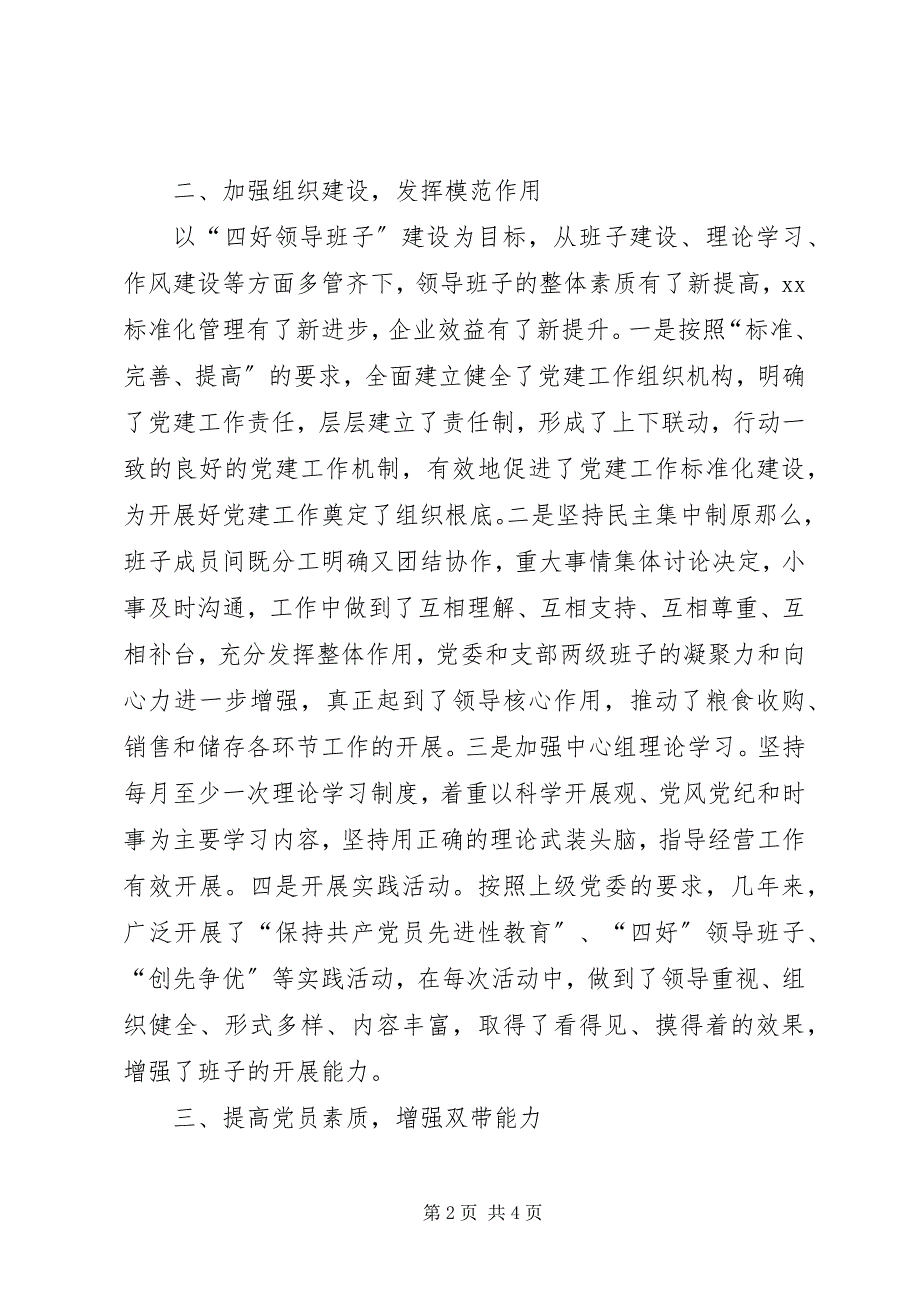 二、加强组织建设，发挥模范作用
以“四好领导班子〞建设为目标，从班子建设、理论学习、
作风建设等方面多管齐下，领导班子的整体素质有了新提高，xx
标准化管理有了新进步，企业效益有了新提升。一是按照“标准、
完善、提高〞的要求，全面建立健全了党建工作组织机构，明确
了党建工作责任，层层建立了责任制，形成了上下联动，行动一
致的良好的党建工作机制，有效地促进了党建工作标准化建设，
为开展好党建工作奠定了组织根底。二是坚持民主集中制原那么，
班子成员间既分工明确又团结协作，重大事情集体讨论决定，小
事及时沟通，工作中做到了互相理解、互相支持、互相尊重、互
相补台，充分发挥整体作用，党委和支部两级班子的凝聚力和向
心力进一步增强，真正起到了领导核心作用，推动了粮食收购、
销售和储存各环节工作的开展。三是加强中心组理论学习。坚持
每月至少一次理论学习制度，着重以科学开展观、党风党纪和时
事为主要学习内容，坚持用正确的理论武装头脑，指导经营工作
有效开展。四是开展实践活动。按照上级党委的要求，几年来，
广泛开展了“保持共产党员先进性教育〞、“四好〞领导班子、
“创先争优〞等实践活动，在每次活动中，做到了领导重视、组
织健全、形式多样、内容丰富，取得了看得见、摸得着的效果，
增强了班子的开展能力。
三、提高党员素质，增强双带能力
第 2 页 共 4 页